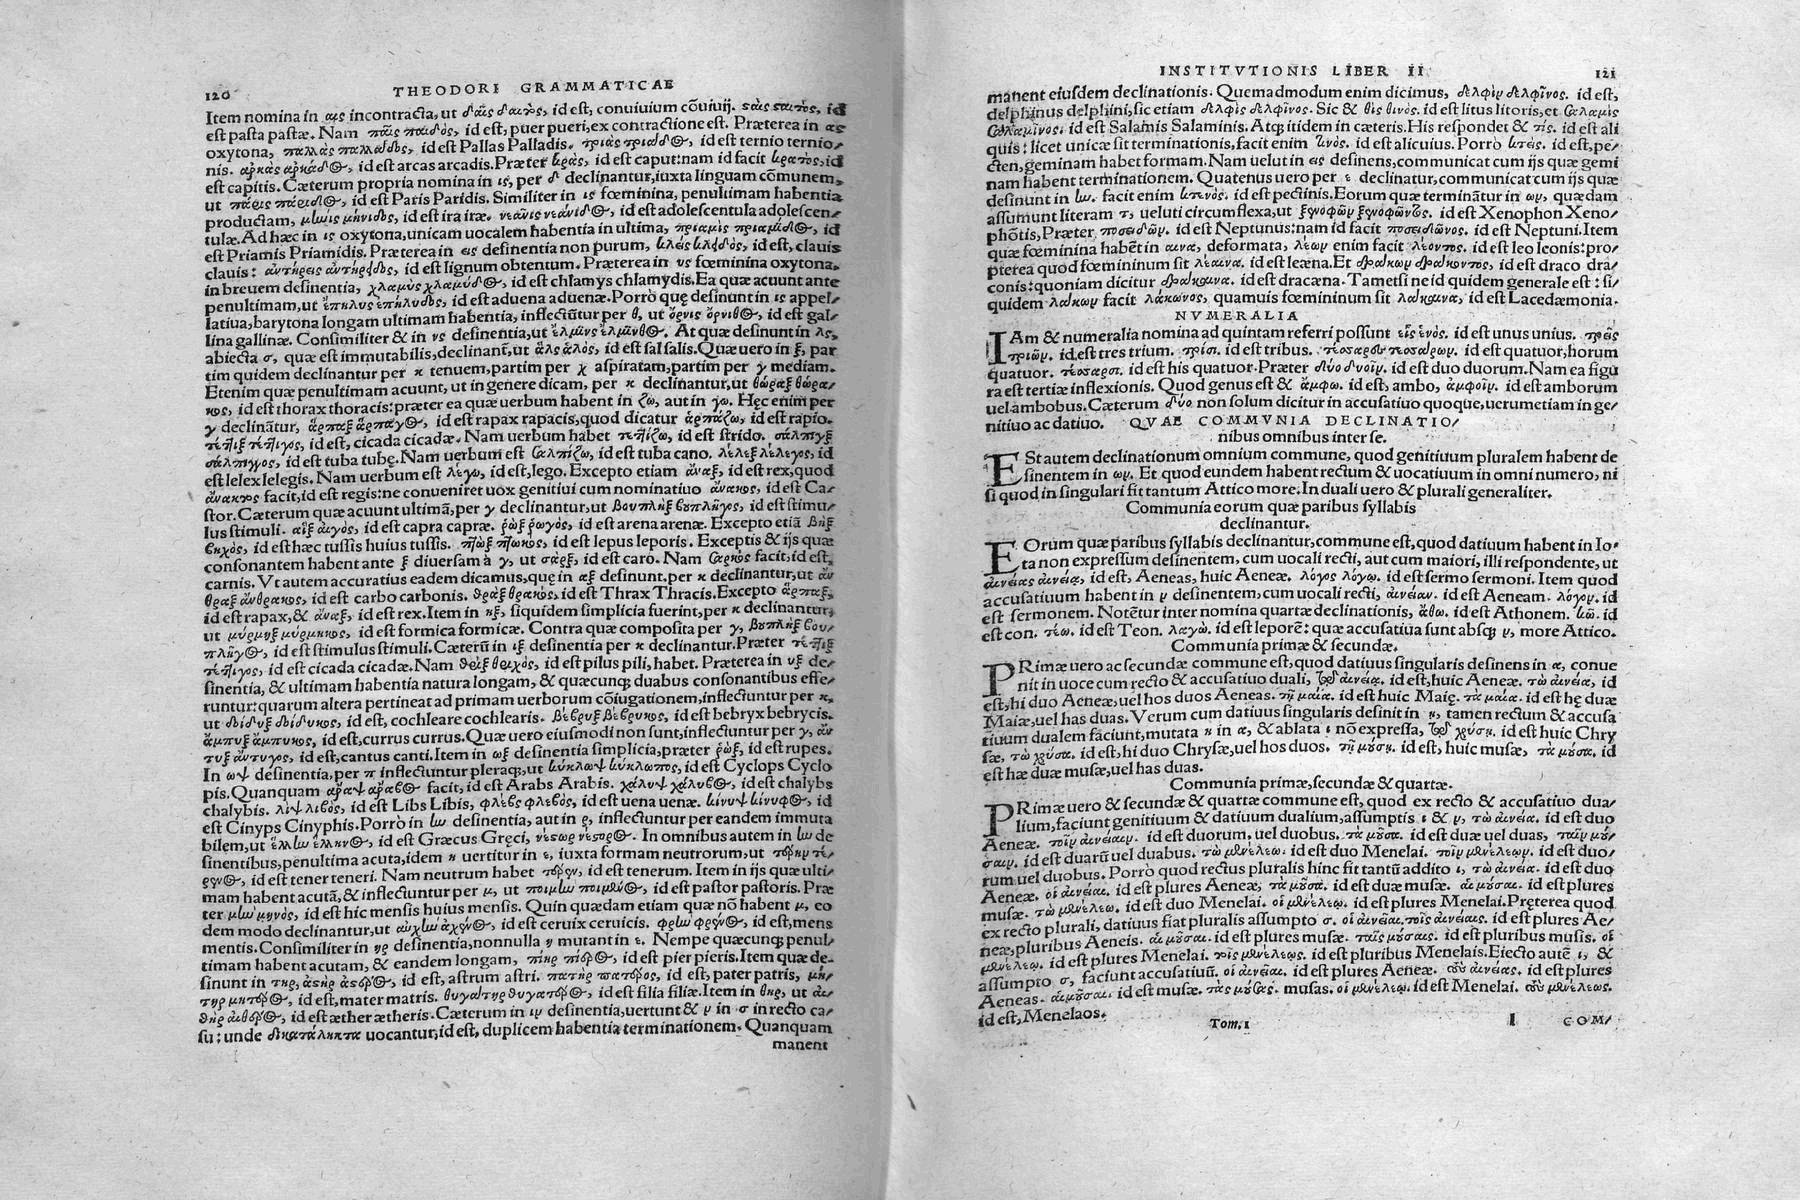 120 THEODORI GRAMMATICAE
Item nomina in αις incontracta, ut δαῒς δαιτὸς, id est, conuiuium cõuiuij. σαὶς σαιτὸς, id
est pasta pastæ. Nam παῖς παιδὸς, id est, puer pueri, ex contractione est. Præterea in ας
oxytona, παλλὰς παλλάδος, id est Pallas Palladis. τριὰς τριάδος, id est ternio ternio/
nis. ἀρκὰς ἀρκάδος, id est arcas arcadis. Præter κρὰς, id est caput: nam id facit κρατὸς, id
est capitis. Cæterum propria nomina in ις, per δ declinantur, iuxta linguam cõmunem,
ut πάρις πάριδος, id est Paris Paridis. Similiter in ις fœminina, penultimam habentia
productam, μῆνις μήνιδος, id est ira iræ. νεᾶνις νεάνιδος, id est adolescentula adolescen/
tulæ. Ad hæc in ις oxytona, unicam uocalem habentia in ultima, πριαμὶς πριαμίδος, id
est Priamis Priamidis. Præterea in εις desinentia non purum, κλεὶς κλειδὸς, id est, clauis
clauis: ἀντήρεις ἀντήρειδος, id est lignum obtentum. Præterea in υς fœminina oxytona,
in breuem desinentia, χλαμὺς χλαμύδος, id est chlamys chlamydis. Ea quæ acuunt ante
penultimam, ut ἔπηλυς ἐπήλυδος, id est aduena aduenæ. Porrò quę desinunt in ις appel/
latiua, barytona longam ultimam habentia, inflectũtur per θ, ut ὄρνις ὄρνιθος, id est gal/
lina gallinæ. Consimiliter & in νς desinentia, ut ἕλμινς ἕλμινθος. At quæ desinunt in λς,
abiecta σ, quæ est immutabilis, declinant̃, ut ἅλς ἁλὸς, id est sal salis. Quæ uero in ξ, par
tim quidem declinantur per κ tenuem, partim per χ aspiratam, partim per γ mediam.
Etenim quæ penultimam acuunt, ut in genere dicam, per κ declinantur, ut θώραξ θώρα/
κος, id est thorax thoracis: præter ea quæ uerbum habent in ζω, aut in γω. Hęc enim per
γ declinãtur, ἅρπαξ ἅρπαγος, id est rapax rapacis, quod dicatur ἁρπάζω, id est rapio.
τέτλιξ τέτλιγος, id est, cicada cicadæ. Nam uerbum habet τετλίζω, id est strido. σάλπιγξ
σάλπιγγος, id est tuba tubę. Nam uerbum est σαλπίζω, id est tuba cano. λέλεξ λέλεγος, id
est lelex lelegis. Nam uerbum est λέγω, id est, lego. Excepto etiam ἄναξ, id est rex, quod
ἄνακτος facit, id est regis: ne conueniret uox genitiui cum nominatiuo ἄνακος, id est Ca/
stor. Cæterum quæ acuunt ultimã, per γ declinantur, ut βουπλὴξ βουπλῆγος, id est stimu/
lus stimuli. αἲξ αἰγὸς, id est capra capræ. ῥὼξ ῥωγὸς, id est arena arenæ. Excepto etiã βὴξ
βηχὸς, id est hæc tussis huius tussis. πτὼξ πτωκὸς, id est lepus leporis. Exceptis & ijs quæ
consonantem habent ante ξ diuersam à γ, ut σὰρξ, id est caro. Nam σαρκὸς facit, id est,
carnis. Vt autem accuratius eadem dicamus, quę in αξ desinunt, per κ declinantur, ut ἄν
θραξ ἄνθρακος, id est carbo carbonis. θρᾲξ θρακὸς, id est Thrax Thracis. Excepto ἅρπαξ,
id est rapax, & ἄναξ, id est rex. Item in ηξ, siquidem simplicia fuerint, per κ declinantur,
ut μύρμηξ μύρμηκος, id est formica formicæ. Contra quæ composita per γ, βουπλὴξ βου/
πλῆγος, id est stimulus stimuli. Cæterũ in ιξ desinentia per κ declinantur. Præter τέτλιξ
τέτλιγος, id est cicada cicadæ. Nam θρὶξ τριχὸς, id est pilus pili, habet. Præterea in υξ de/
sinentia, & ultimam habentia natura longam, & quæcunq; duabus consonantibus effe/
runtur: quarum altera pertineat ad primam uerborum cõiugationem, inflectuntur per κ,
ut δοίδυξ δοίδυκος, id est, cochleare cochlearis. βέβρυξ βέβρυκος, id est bebryx bebrycis.
ἄμπυξ ἄμπυκος, id est, currus currus. Quæ uero eiusmodi non sunt, inflectuntur per γ, ἄν
τυξ ἄντυγος, id est, cantus canti. Item in ωξ desinentia simplicia, præter ῥὼξ, id est rupes.
In ωψ desinentia, per π inflectuntur pleraq;, ut κύκλωψ κύκλωπος, id est Cyclops Cyclo
pis. Quanquam ἄραψ ἄραβος facit, id est Arabs Arabis. χάλυψ χάλυβος, id est chalybs
chalybis. λὶψ λιβὸς, id est Libs Libis, φλὲψ φλεβὸς, id est uena uenæ. κίνυψ κίνυφος, id
est Cinyps Cinyphis. Porrò in ην desinentia, aut in ρ, inflectuntur per eandem immuta
bilem, ut ἕλλην ἕλληνος, id est Græcus Gręci, νέστωρ νέστορος. In omnibus autem in ην de
sinentibus, penultima acuta, idem η uertitur in ε, iuxta formam neutrorum, ut τέρην τέ/
ρενος, id est tener teneri. Nam neutrum habet τέρεν, id est tenerum. Item in ijs quæ ulti/
mam habent acutã, & inflectuntur per μ, ut ποιμὴν ποιμένος, id est pastor pastoris. Præ
ter μὴν μηνὸς, id est hic mensis huius mensis. Quin quædam etiam quæ nõ habent μ, eo
dem modo declinantur, ut αὐχὴν αὐχένος, id est ceruix ceruicis. φρὴν φρενὸς, id est, mens
mentis. Consimiliter in ηρ desinentia, nonnulla η mutant in ε. Nempe quæcunq; penul/
timam habent acutam, & eandem longam, πίηρ πίερος, id est pier pieris. Item quæ de/
sinunt in τηρ, ἀστὴρ ἀστέρος, id est, astrum astri. πατὴρ πατέρος, id est, pater patris, μή/
τηρ μητέρος, id est, mater matris. θυγάτηρ θυγατέρος, id est filia filiæ. Item in θηρ, ut αἰ/
θὴρ αἰθέρος, id est æther ætheris. Cæterum in ιν desinentia, uertunt & ν in σ in recto ca/
su: unde δικατάληκτα uocantur, id est, duplicem habentia terminationem. Quanquam
manent
INSTITVTIONIS LIBER II 121
manent eiusdem declinationis. Quemadmodum enim dicimus, δελφὶν δελφῖνος. id est,
delphinus delphini, sic etiam δελφὶς δελφῖνος. Sic & θὶς θινὸς. id est litus litoris, et σαλαμὶς
σαλαμῖνος. id est Salamis Salaminis. Atq; itidem in cæteris. His respondet & τὶς. id est ali
quis: licet unicæ sit terminationis, facit enim τινὸς. id est alicuius. Porrò κτεὶς. id est, pe/
cten, geminam habet formam. Nam uelut in εις desinens, communicat cum ijs quæ gemi
nam habent terminationem. Quatenus uero per ε declinatur, communicat cum ijs quæ
desinunt in ην. facit enim κτενὸς. id est pectinis. Eorum quæ terminãtur in ων, quædam
assumunt literam τ, ueluti circumflexa, ut ξενοφῶν ξενοφῶντος. id est Xenophon Xeno/
phõtis, Præter ποσειδῶν. id est Neptunus: nam id facit ποσειδῶνος. id est Neptuni. Item
quæ fœminina habẽt in αινα, deformata, λέων enim facit λέοντος. id est leo leonis: pro/
pterea quod fœmininum sit λέαινα. id est leæna. Et δράκων δράκοντος, id est draco dra/
conis: quoniam dicitur δράκαινα. id est dracæna. Tametsi ne id quidem generale est: si/
quidem λάκων facit λάκωνος, quamuis fœmininum sit λάκαινα, id est Lacedæmonia.
NVMERALIA
IAm & numeralia nomina ad quintam referri possunt εἷς ἑνὸς. id est unus unius. τρεῖς
τριῶν. id est tres trium. τρίσι. id est tribus. τέσσαρες τεσσάρων. id est quatuor, horum
quatuor. τέσσαρσι. id est his quatuor. Præter δύο δυοῖν. id est duo duorum. Nam ea figu
ra est tertiæ inflexionis. Quod genus est & ἄμφω. id est, ambo, ἀμφοῖν. id est amborum
uel ambobus. Cæterum δύο non solum dicitur in accusatiuo quoque, uerumetiam in ge/
nitiuo ac datiuo. QVAE COMMVNIA DECLINATIO/
nibus omnibus inter se.
ESt autem declinationum omnium commune, quod genitiuum pluralem habent de
sinentem in ων. Et quod eundem habent rectum & uocatiuum in omni numero, ni
si quod in singulari fit tantum Attico more. In duali uero & plurali generaliter.
Communia eorum quæ paribus syllabis
declinantur.
EOrum quæ paribus syllabis declinantur, commune est, quod datiuum habent in Io/
ta non expressum desinentem, cum uocali recti, aut cum maiori, illi respondente, ut
αἰνείας αἰνείᾳ, id est, Aeneas, huic Aeneæ. λόγος λόγῳ. id est sermo sermoni. Item quod
accusatiuum habent in ν desinentem, cum uocali recti, αἰνείαν. id est Aeneam. λόγον. id
est sermonem. Notẽtur inter nomina quartæ declinationis, ἄθω. id est Athonem. κῶ. id
est con. τέω. id est Teon. λαγὼ. id est leporẽ: quæ accusatiua sunt absq; ν, more Attico.
Communia primæ & secundæ.
PRimæ uero ac secundæ commune est, quod datiuus singularis desinens in α, conue
nit in uoce cum recto & accusatiuo duali, τῷ αἰνείᾳ. id est, huic Aeneæ. τὼ αἰνεία, id
est, hi duo Aeneæ, uel hos duos Aeneas. τῇ μαίᾳ. id est huic Maię. τὰ μαία. id est hę duæ
Maiæ, uel has duas. Verum cum datiuus singularis desinit in ῃ, tamen rectum & accusa
tiuum dualem faciunt, mutata η in α, & ablata ι nõ expressa, τῷ χρύσῃ. id est huic Chry
sæ, τὼ χρύσα. id est, hi duo Chrysæ, uel hos duos. τῇ μούσῃ. id est, huic musæ, τὰ μούσα. id
est hæ duæ musæ, uel has duas.
Communia primæ, secundæ & quartæ.
PRimæ uero & secundæ & quartæ commune est, quod ex recto & accusatiuo dua/
lium, faciunt genitiuum & datiuum dualium, assumptis ι & ν, τὼ αἰνεία. id est duo
Aeneæ. τοῖν αἰνείαιν. id est duorum, uel duobus. τὰ μούσα. id est duæ uel duas, ταῖν μού/
σαιν. id est duarũ uel duabus. τὼ μενέλεω. id est duo Menelai. τοῖν μενέλεῳν. id est duo/
rum uel duobus. Porrò quod rectus pluralis hinc fit tantũ addito ι, τὼ αἰνεία. id est duo
Aeneæ. οἱ αἰνείαι. id est plures Aeneæ, τὰ μούσα. id est duæ musæ. αἱ μοῦσαι. id est plures
musæ. τὼ μενέλεω. id est duo Menelai. οἱ μενέλεῳ. id est plures Menelai. Pręterea quod
ex recto plurali, datiuus fiat pluralis assumpto σ. οἱ αἰνείαι. τοῖς αἰνείαις. id est plures Ae/
neæ, pluribus Aeneis. αἱ μοῦσαι. id est plures musæ. ταῖς μούσαις. id est pluribus musis. οἱ
μενέλεῳ. id est plures Menelai. τοῖς μενέλεῳς. id est pluribus Menelais. Eiecto autẽ ι, &
assumpto σ, faciunt accusatiuũ. οἱ αἰνείαι. id est plures Aeneæ. τοὺς αἰνείας. id est plures
Aeneas. αἱ μοῦσαι. id est musæ. τὰς μούσας. musas. οἱ μενέλεῳ. id est Menelai. τοὺς μενέλεως.
id est, Menelaos.
Tom. 1 I COM/